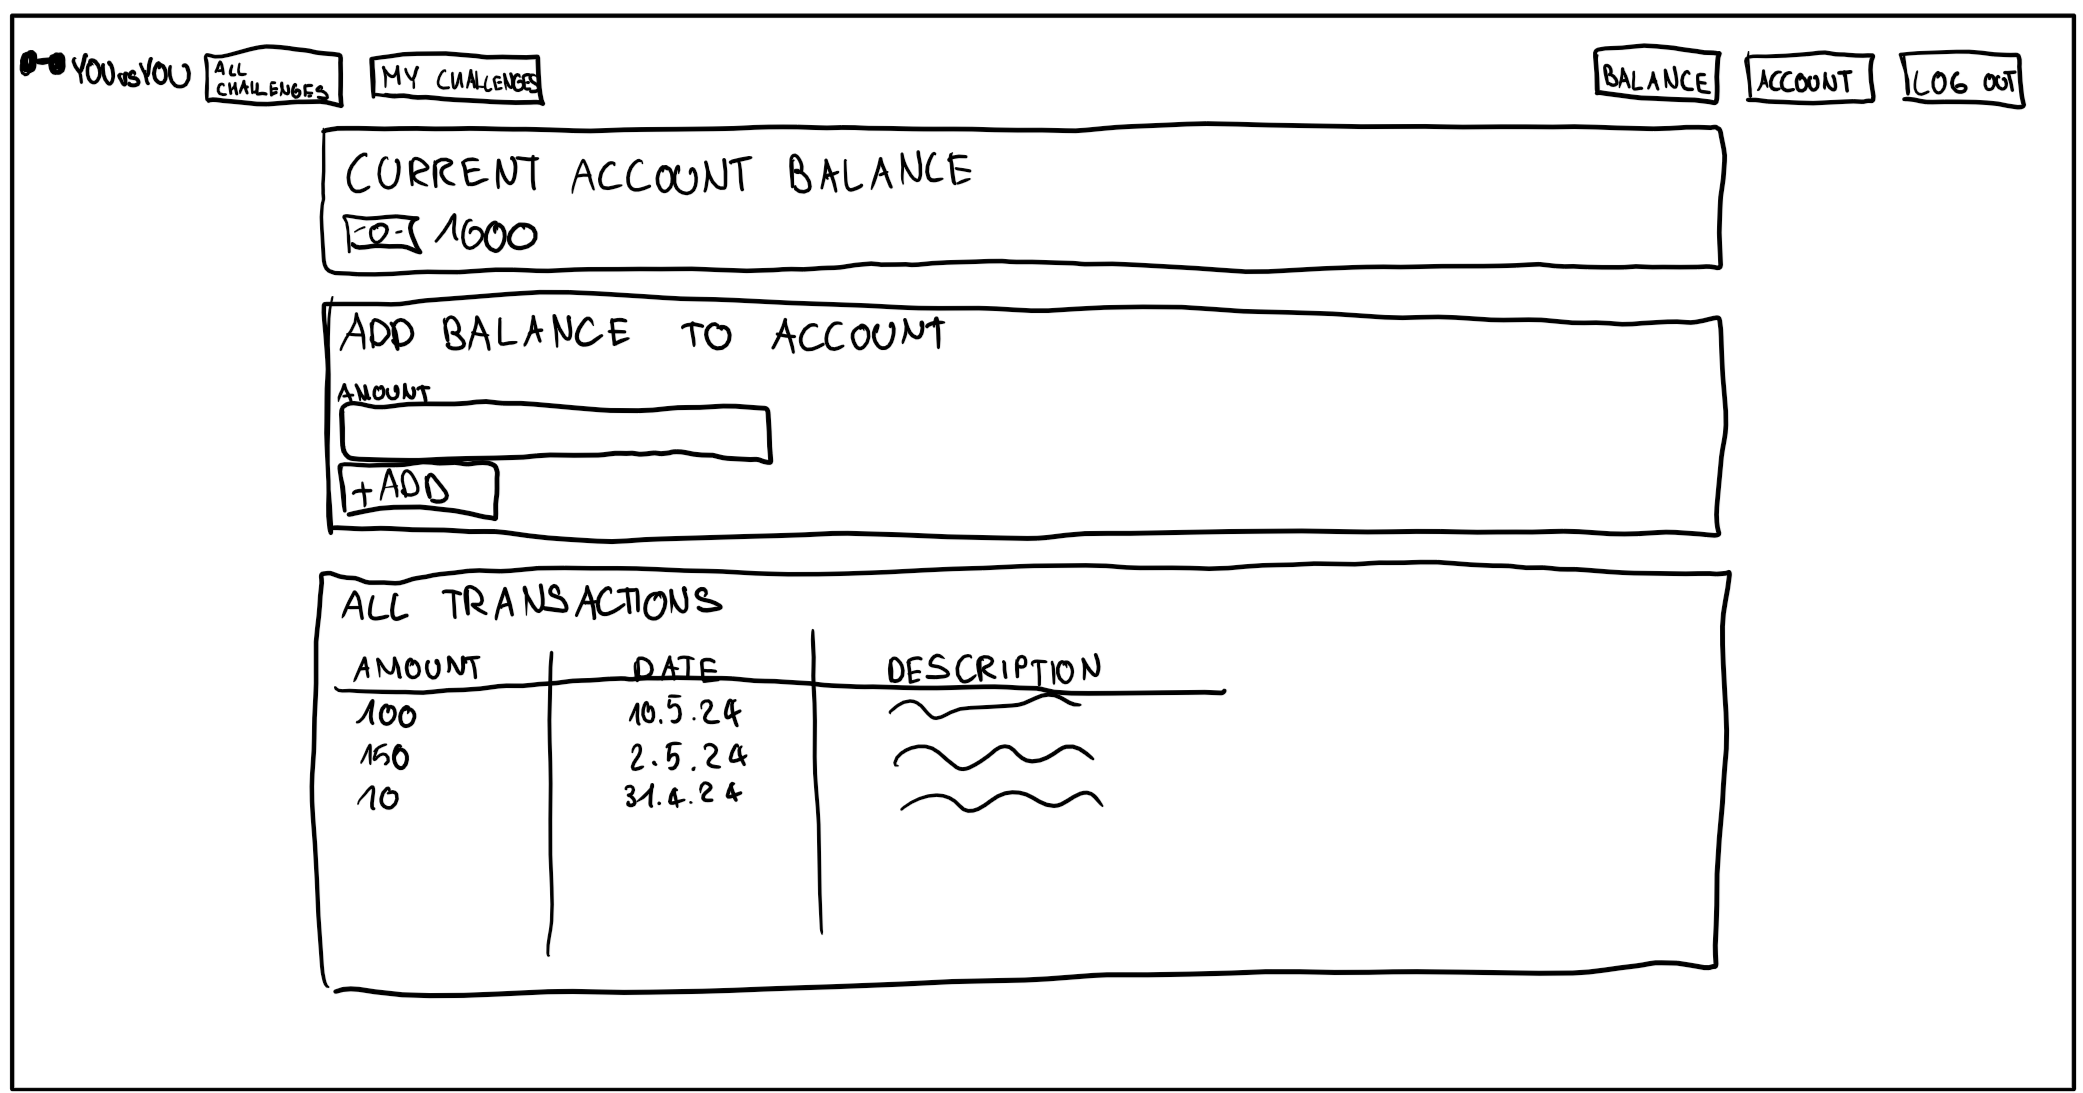 YOU vs YOU
ALL
CHALLENGES
MY CHALLENGES
BALANCE
ACCOUNT
LOG OUT
CURRENT ACCOUNT BALANCE
1000
ADD BALANCE TO ACCOUNT
AMOUNT
+ ADD
ALL TRANSACTIONS
AMOUNT DATE DESCRIPTION
100 10.5.24
150 2.5.24
10 31.4.24